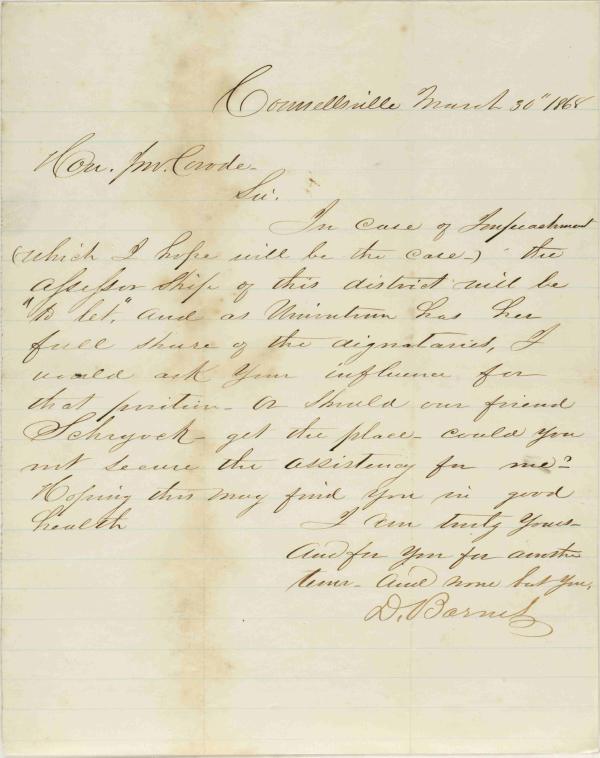 Connellsville March 30" 1868
Hon. Jno. Covode.
Sir.
In case of Impeachment
(which I hope will be the case-) the
assessor ship of this district will be
"to let," and as Uniontown has her
full share of the dignataries, I
would ask your influence for
that position- or should our friend
Schryock- get the place- could you
not secure the assistency for me?
Hoping this may find you in good
health
I am truly yours-
And for you for another
term- And none but you,
D. Barnes